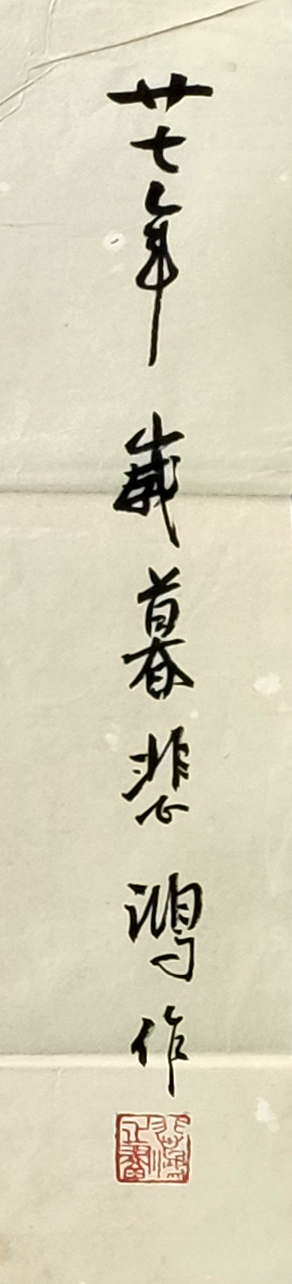 廿七年歲暮悲鴻作